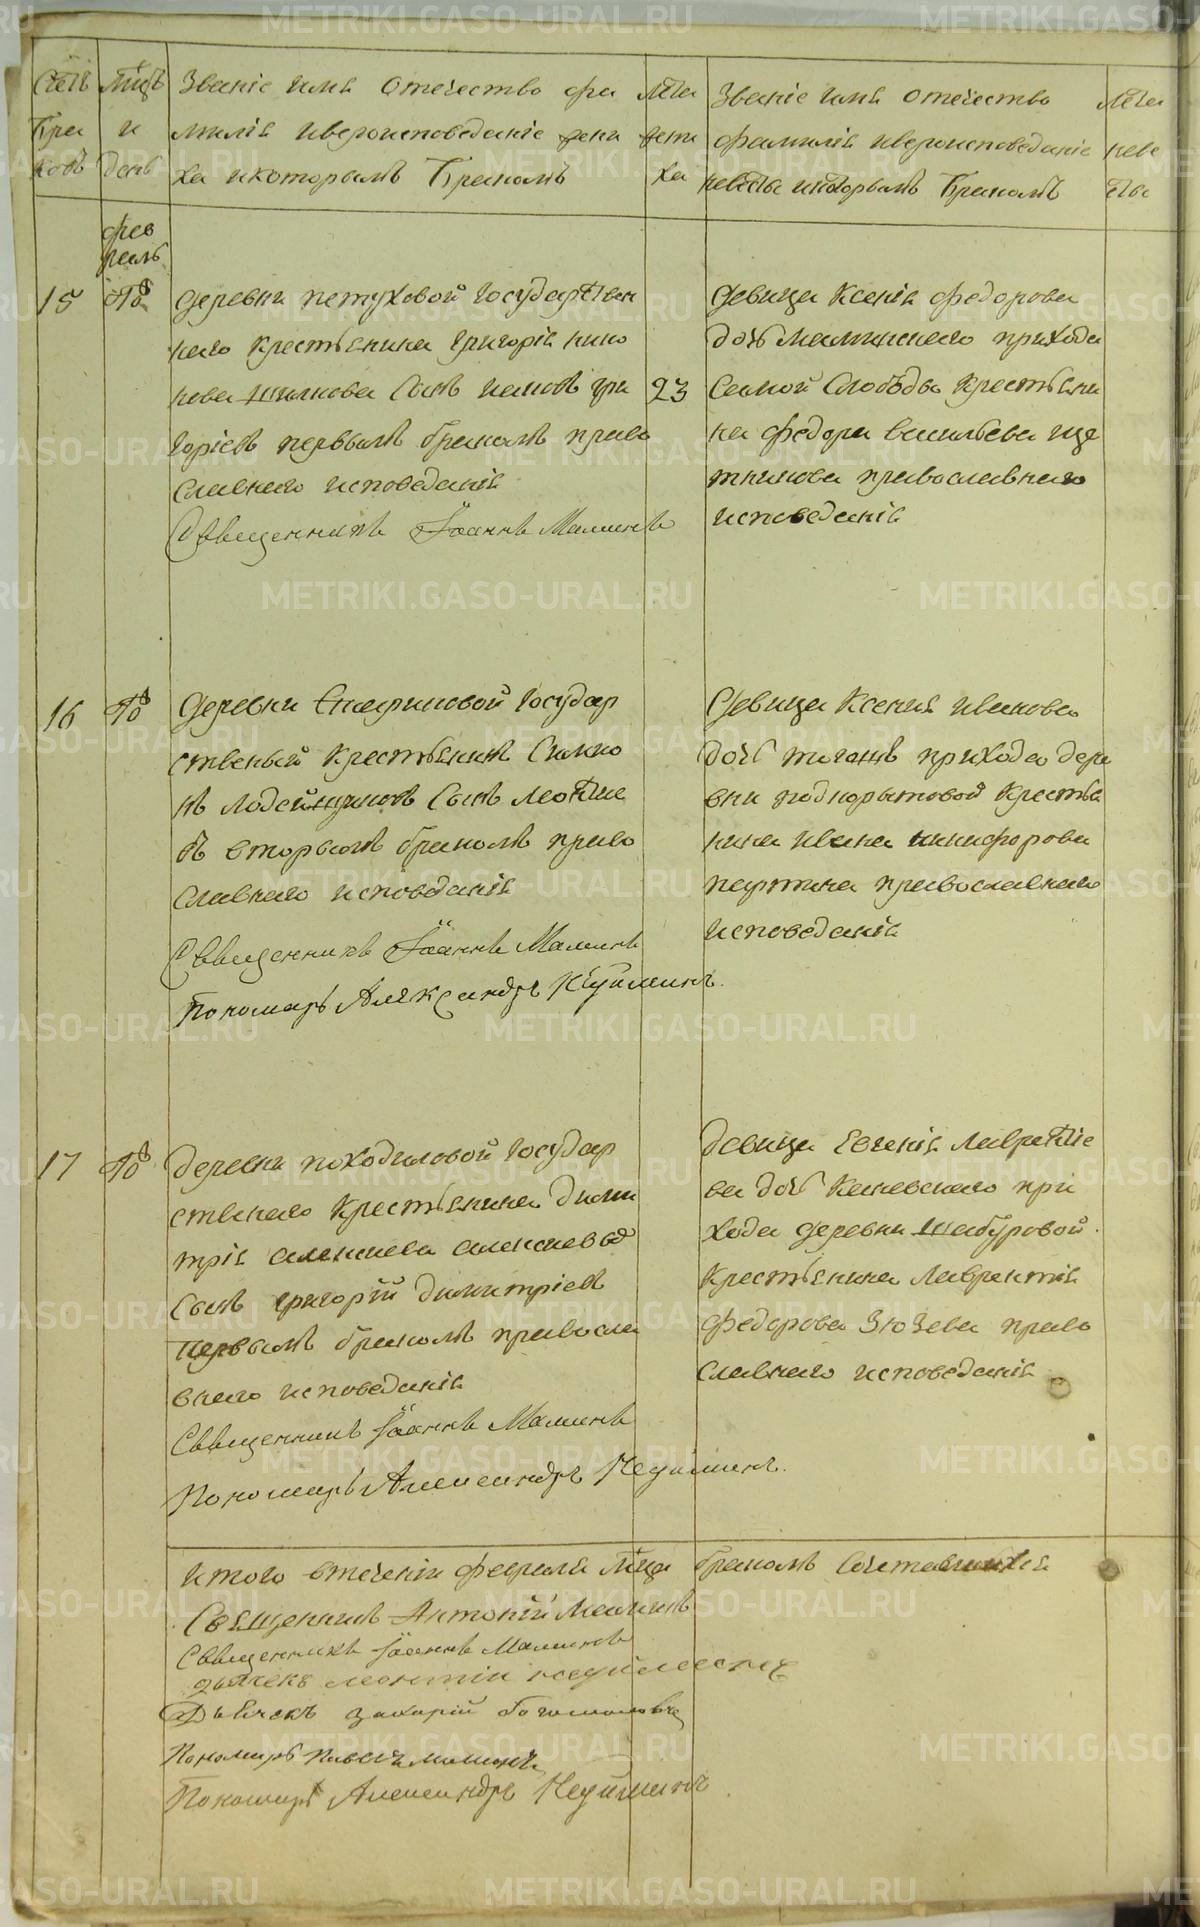 Счетъ браковъ
Мцъ и день
Званіе имя отечество фа
милія ивероисповеданіе жени
ха икоторымъ бракомъ
Лета жени ха
Званіе имя отечество
фамилія ивероисповеданіе
невесты икоторымъ бракомъ
Лета неве сты
фев
раль
15
деревни петуховой государствен
наго крестьянина григорія нико
нова шилкова сынъ иаковъ гри
горіевъ первымъ бракомъ право
славнаго исповеданія
Священникъ Іоаннъ Маминъ
23
девица Ксенія федорова
дочь маминскаго прихода
самой слободы крестьяни
на федора васильева ще
тникова православнаго
исповеданія
16
деревни Гос­удар
ственый крестьянинъ Симио
нъ лодейщиковъ сынъ леонтье
въ вторымъ бракомъ право
славнаго исповеданія
Священникъ Іоаннъ Маминъ
Пономарь Александръ Кеуйминъ
девица Ксения иванова
дочь тогожъ прихода дере
вни поднорытовой крестья
нина ивана никифорова
партина православнаго
исповеданія
17
деревни походиловой государ
ственаго крестьянина дими
трія алексиева
сынъ григорій димитріевъ
первымъ бракомъ правосла
внаго исповеданія
Священникъ Іоаннъ Маминъ
Пономарь Александръ Кеуйминъ
девица Евгенія лаврентіе
ва дочь Каневскаго при
хода деревни шабуровой
крестьянина лаврентія
федорова Зюзева право
славнаго исповеданія
итого втеченіи февраля мца бракомъ
Священникъ Антоній Маминъ
Священникъ Іоаннъ Маминъ
дьячекъ леонтіи
Дьячекъ захарій богомоловъ
Пономарь Павелъ маминъ
Пономарь Александръ Кеуйминъ
METRIKI.GASO-URAL.RU